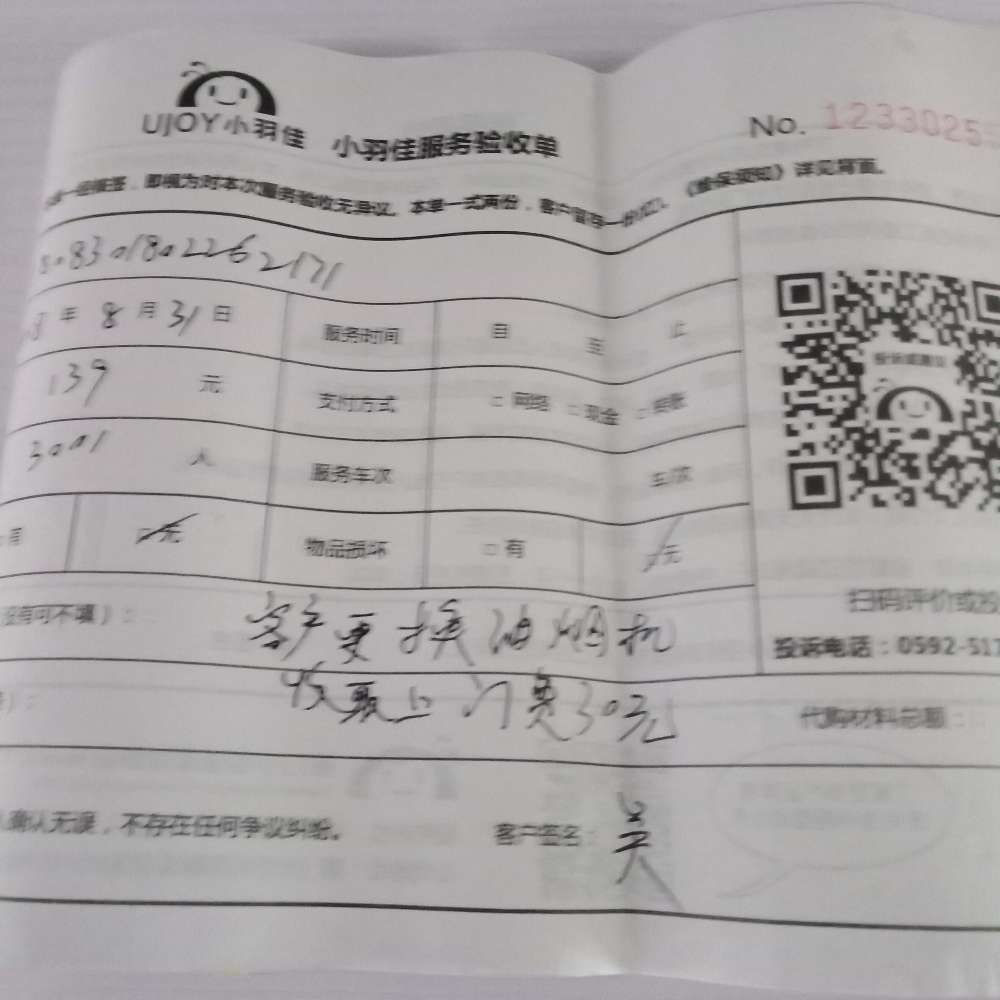 UJOY小羽佳 小羽佳服务验收单 No. 1233025
一经签, 即视为对本次服务验收无异议。本单一式两份, 客户留存一份 《维保须知》详见背面。
808301802262171
8 年 8 月 31 日 服务时间 自 至 止
139 元 支付方式 □ 网络 □ 现金 □ 转账
3001 人 服务车次 车/次
有 无 物品损坏 □ 有 无
投诉或建议
没有可不填): 客户更换油烟机
收取上门费30元
扫码评价或投
投诉电话:0592-51
代购材料总额:
确认无误, 不存在任何争议纠纷。 客户签名: 吴